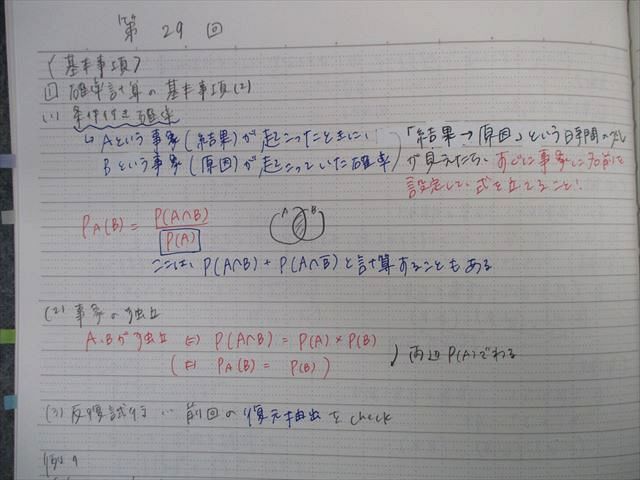 第 29 回
〈基本事項〉
1 確率計算の基本事項(2)
(1) 条件付き確率
↳ Aという事象(結果)が起こったときに、
Bという事象(原因)が起こっていた確率
「結果→原因」という時間の流れ
が見えたら、すぐに事象に名前を
設定して、式を立てること!
P_A(B) = P(A∩B) / P(A)
A B
ここは、P(A∩B) + P(A∩B̄) と計算することもある
(2) 事象の独立
A、Bが独立 ⇔ P(A∩B) = P(A) × P(B)
(⇔ P_A(B) = P(B))
両辺P(A)でわる
(3) 反復試行 … 前回の復元抽出を check